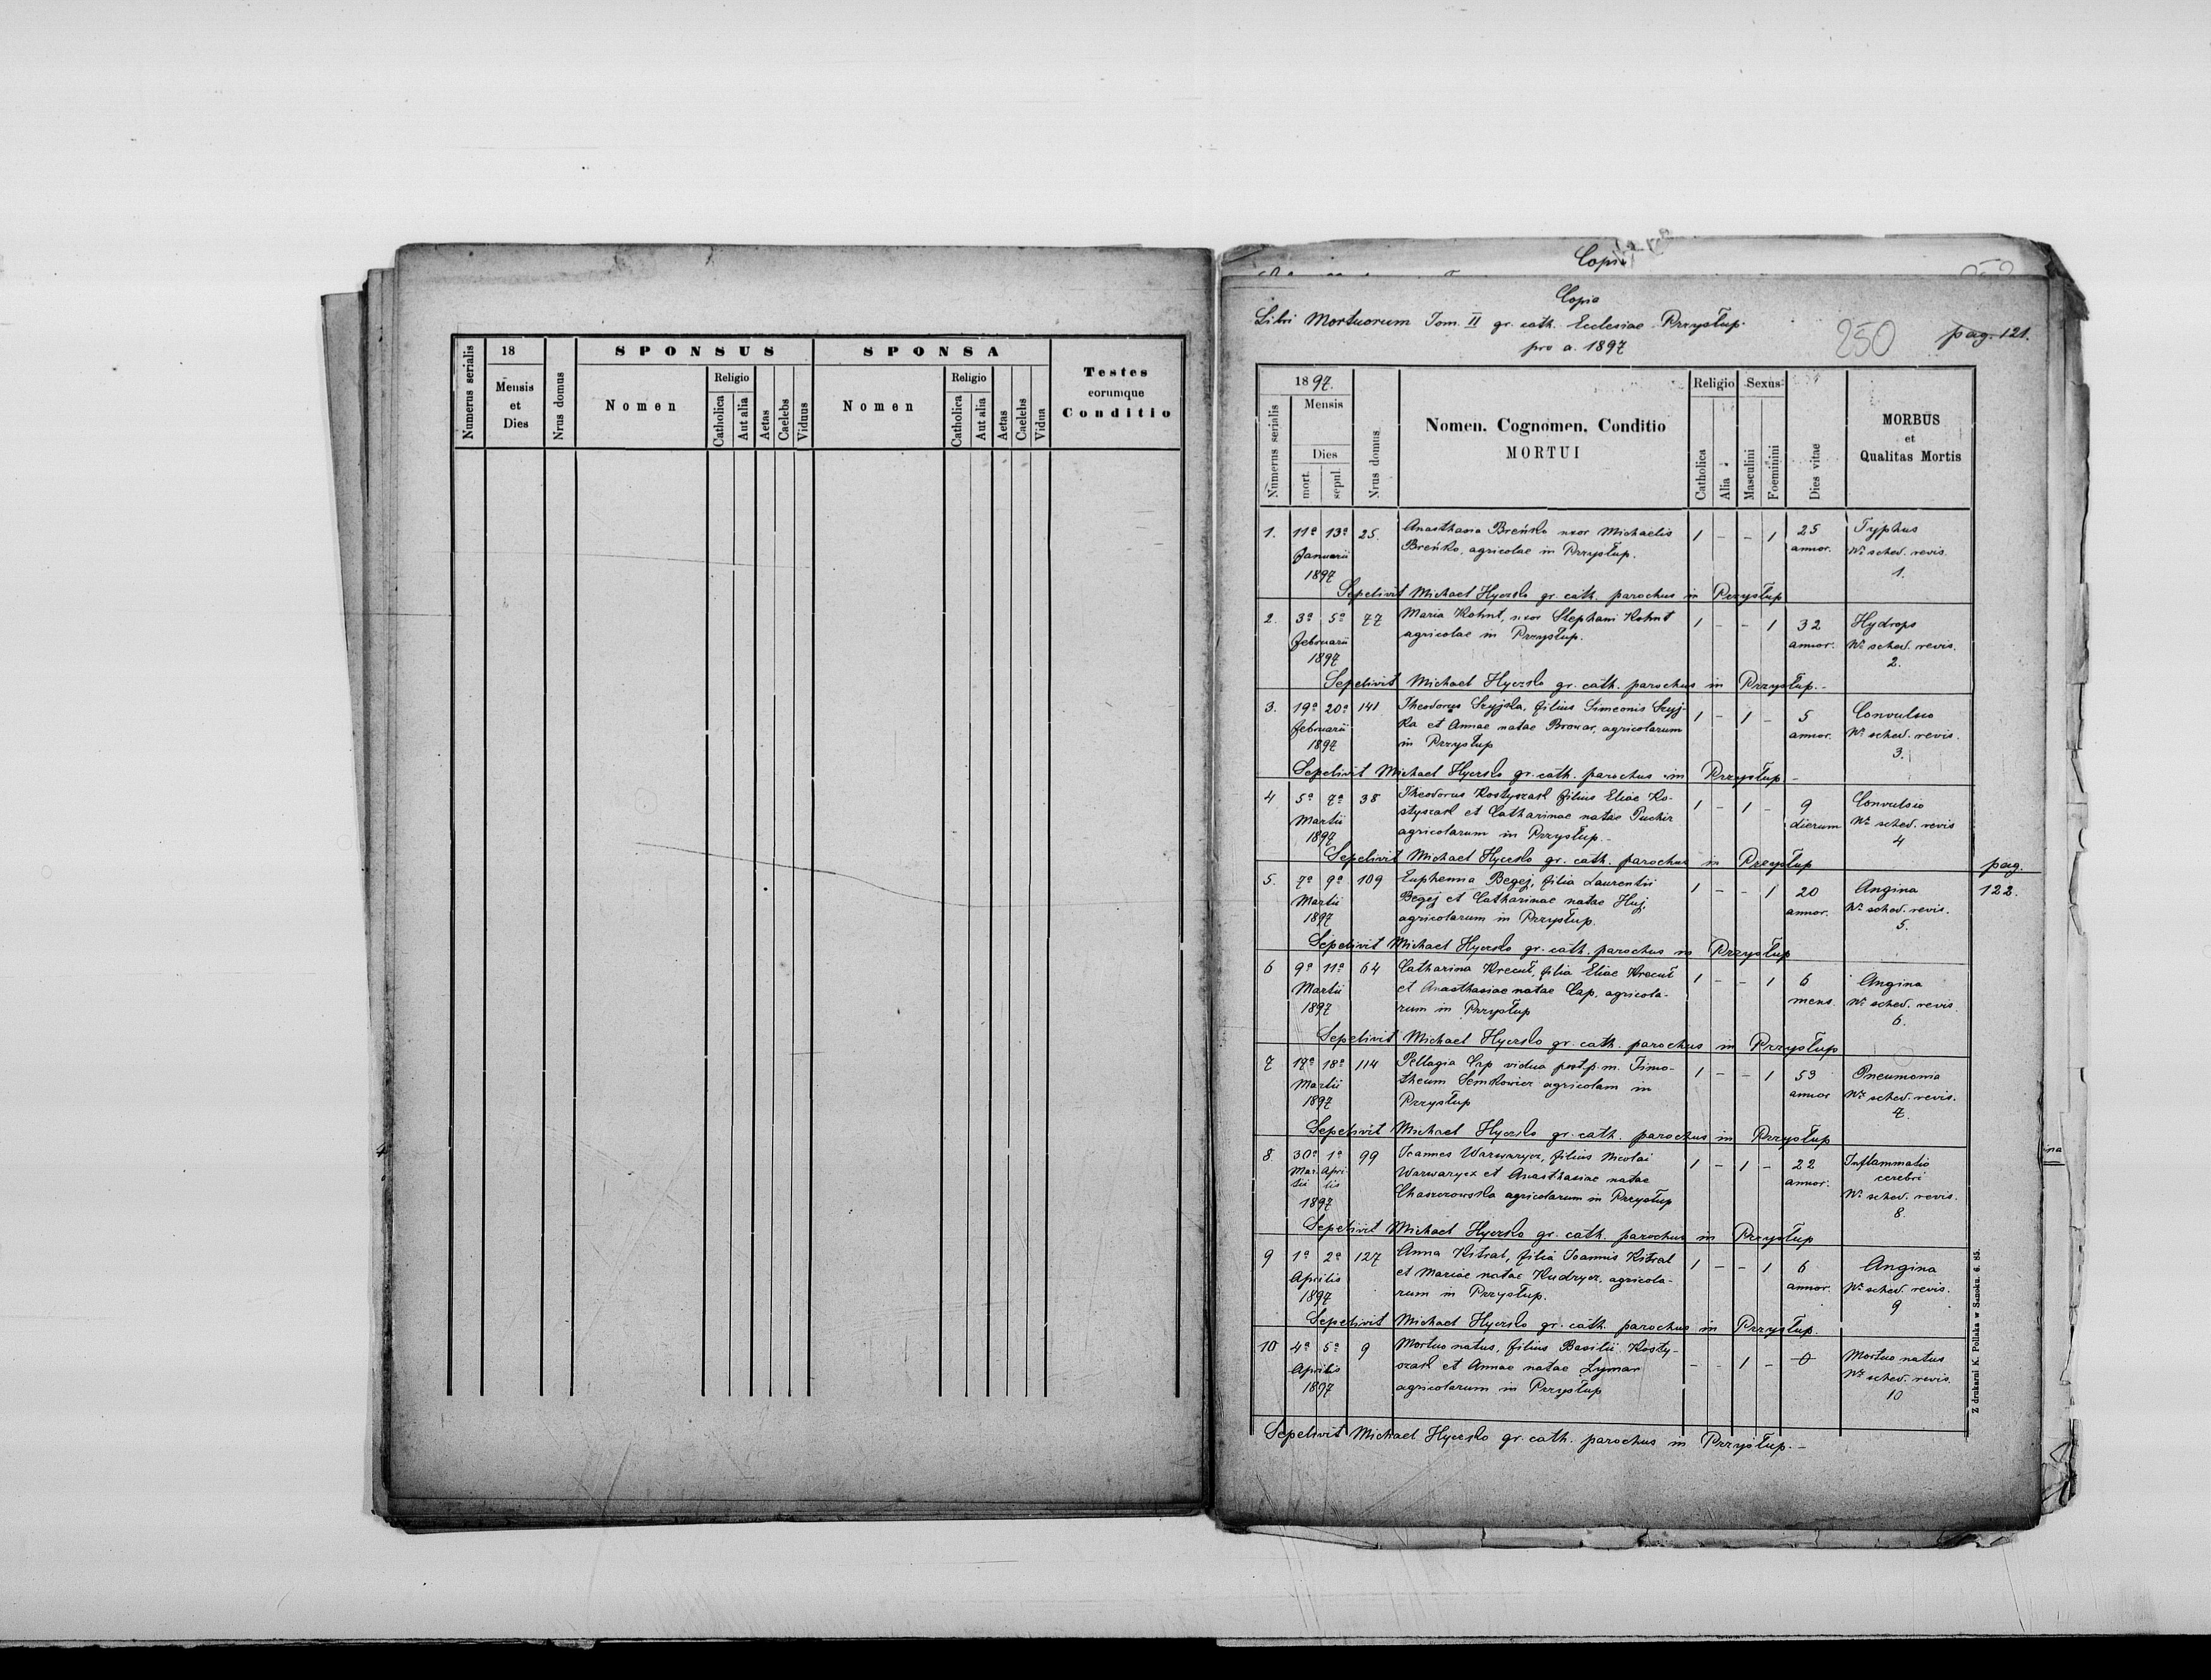 Numerus serialis
18
Mensis
et
Dies
Nrus domus
SPONSUS
Nomen
Religio
Catholica
Aut alia
Aetas
Caelebs
Viduus
SPONSA
Nomen
Religio
Catholica
Aut alia
Aetas
Caelebs
Vidua
Testes
eorumque
Conditio
Copia
Copia
Libri Mortuorum Tom. II gr. cath. Ecclesiae Przysłup.
pro a. 1897
250
pag. 121.
Numerus serialis
1897.
Mensis
Dies
mort.
sepul.
Nrus domus
Nomen, Cognomen, Conditio
MORTUI
Religio
Catholica
Alia
Sexus
Masculini
Foeminini
Dies vitae
MORBUS
et
Qualitas Mortis
1. 11a 13a 25. Anasthasia Breńko uxor Michaelis 1 - - 1 25 Typhus
Januarii Breńko, agricolae in Przysłup. annor. Nr sched. revis.
1897 1.
Sepelivit Michael Hyczko gr. cath. parochus in Przysłup
2. 3a 5a 77 Maria Kohut, uxor Stephani Kohut 1 - - 1 32 Hydrops
Februarii agricolae in Przysłup. annor. Nr sched. revis.
1897 2.
Sepelivit Michael Hyczko gr. cath. parochus in Przysłup.-
3. 19a 20a 141 Theodorus Szyjka, filius Simeonis Szyj- 1 - 1 - 5 Convulsio
Februarii ka et Annae natae Browar, agricolarum annor. Nr sched. revis.
1897 in Przysłup 3.
Sepelivit Michael Hyczko gr. cath. parochus in Przysłup -
4 5a 7a 38 Theodorus Kostyszak filius Eliae Ko- 1 - 1 - 9 Convulsio
Martii styszak et Catharinae natae Puchir dierum Nr sched. revis
1897 agricolarum in Przysłup.- 4
Sepelivit Michael Hyczko gr. cath. parochus in Przysłup
pag.
122.
5. 7a 9a 109 Euphenna Begej, filia Laurentii 1 - - 1 20 Angina
Martii Begej et Catharinae natae Huj, annor. Nr sched. revis.
1897 agricolarum in Przysłup. 5.
Sepelivit Michael Hyczko gr. cath. parochus in Przysłup
6 9a 11a 64 Catharina Krecuł, filia Eliae Krecuł 1 - - 1 6 Angina
Martii et Anasthasiae natae Cap, agricola- mens. Nr sched. revis
1897 rum in Przysłup 6.
Sepelivit Michael Hyczko gr. cath. parochus in Przysłup
7 17a 18a 114 Pellagia Cap vidua post p. m. Timo- 1 - - 1 53 Pneumonia
Martii theum Semkowicz agricolam in annor Nr sched. revis.
1897 Przysłup 7.
Sepelivit Michael Hyczko gr. cath. parochus in Przysłup
8 30a 1a 99 Joannes Warwarycz, filius Nicolai 1 - 1 - 22 Inflammatio
Mar- Apri- Warwarycz et Anasthasiae natae annor. cerebri
tii lis Chaszczowska agricolarum in Przysłup Nr sched. revis.
1897 8.
Sepelivit Michael Hyczko gr. cath. parochus in Przysłup
9 1a 2a 127 Anna Kitral, filia Joannis Kitral 1 - - 1 6 Angina
Aprilis et Mariae natae Kudrycz, agricola- annor. Nr sched. revis.
1897 rum in Przysłup. 9
Sepelivit Michael Hyczko gr. cath. parochus in Przysłup.
10 4a 5a 9 Mortuo natus, filius Basilii Kosty- - - 1 - 0 Mortuo natus
Aprilis szak et Annae natae Lymar Nr sched. revis.
1897 agricolarum in Przysłup 10
Sepelivit Michael Hyczko gr. cath. parochus in Przysłup.-
Z drukarni K. Pollaka w Sanoku. 6. 85.